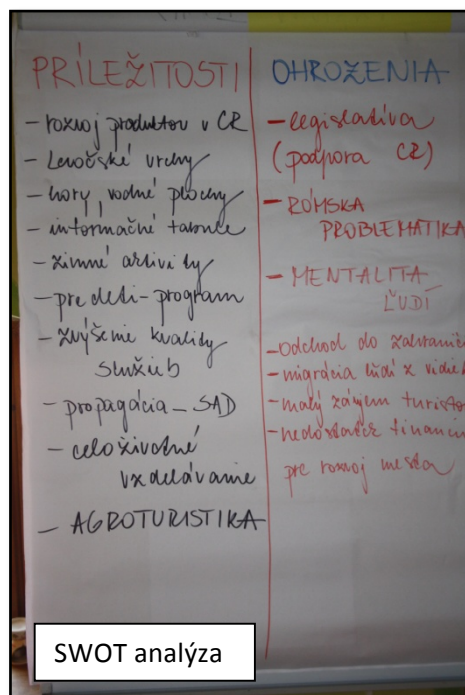 PRÍLEŽITOSTI
- rozvoj produktov v CR
- Levočské vrchy
- hory, vodné plochy
- informačné tabule
- zimné aktivity
- pre deti - program
- zvýšenie kvality
služieb
- propagácia - SAD
- celoživotné
vzdelávanie
- AGROTURISTIKA
OHROZENIA
- legislatíva
(podpora CR)
- RÓMSKA
PROBLEMATIKA
- MENTALITA
ĽUDÍ
- odchod do zahranič
- migrácia ľudí z vidie
- malý záujem turisto
- nedostatek financií
pre rozvoj mesta
SWOT analýza